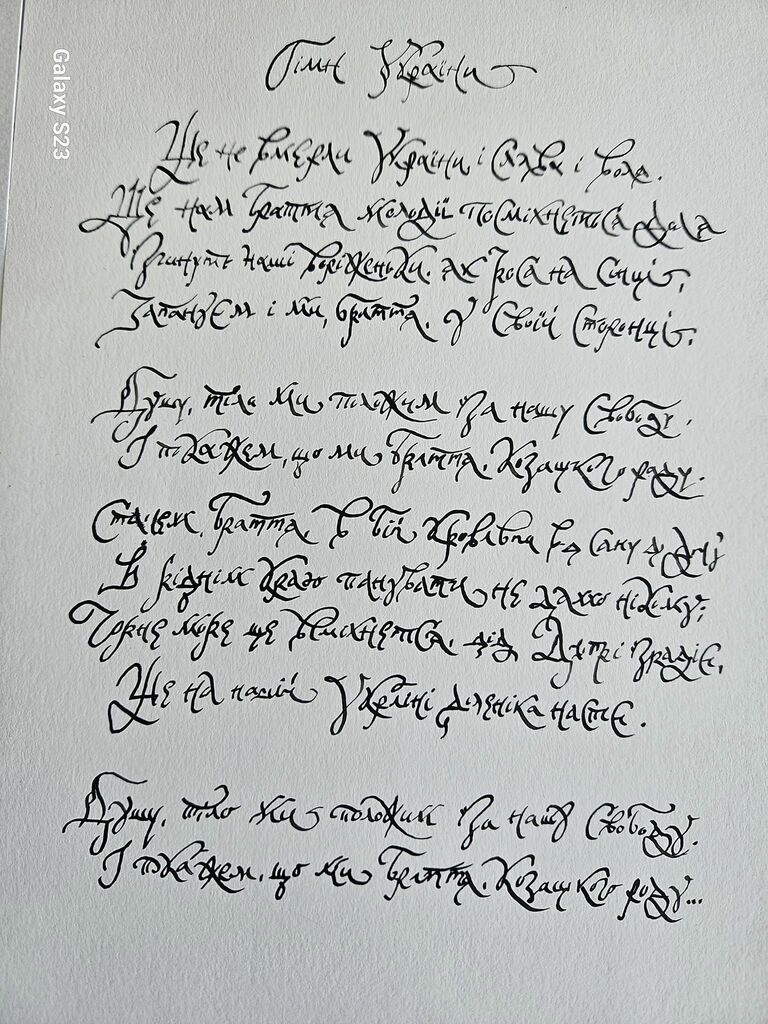 Гімн України
Ще не вмерли України і Слава і воля.
Ще нам браття молодії посміхнеться доля
Згинуть наші воріженьки, як роса на Сонці,
Запануєм і ми, браття, у Своїй Сторонці.
Душу, тіло ми положим За нашу Свободу.
І покажем, що ми браття, Козацького роду.
Станем, браття, в бій кровавий від Сяну до Дону
В ріднім краю панувати не дамо нікому;
Чорне море ще всміхнеться, дід Дніпро зрадіє,
Ще на нашій Україні доленька настіє.
Душу, тіло ми положим За нашу Свободу.
І покажем, що ми браття, Козацького роду...
Galaxy S23